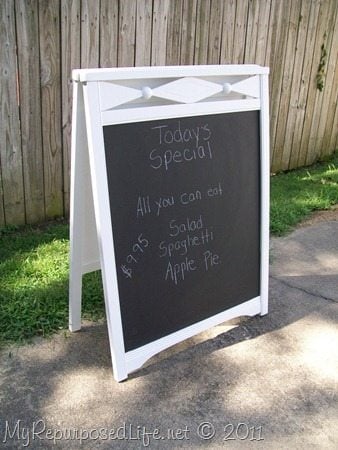 Today's
Special
All you can eat
Salad
Spaghetti
Apple Pie
$9.95
MyRepurposedLife.net © 2011